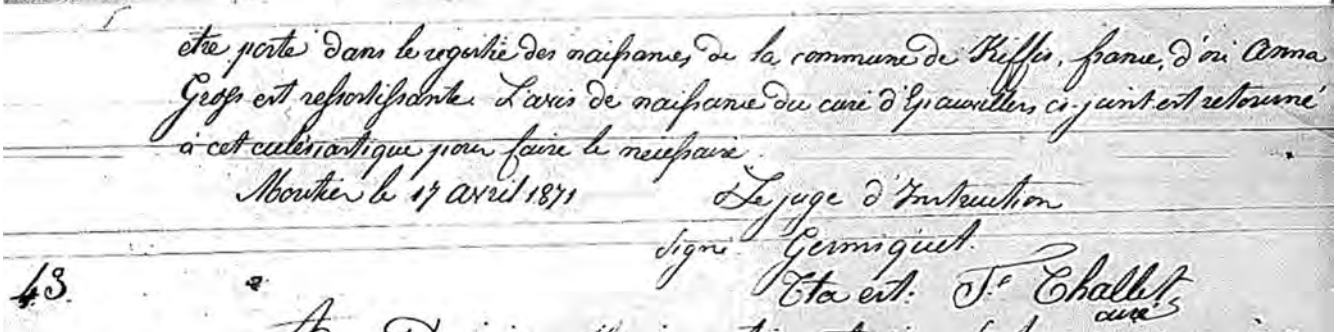 être porté dans le registre des naissances de la commune de Kiffis, france, d'où Anna
Gross est ressortissante. L'avis de naissance du curé d'Epauvillers ci-joint est retourné
à cet ecclésiastique pour faire le nécessaire.
Moutier le 17 avril 1871 Le juge d'Instruction
signé Germiquet.
Ita est: Challet
curé
43.